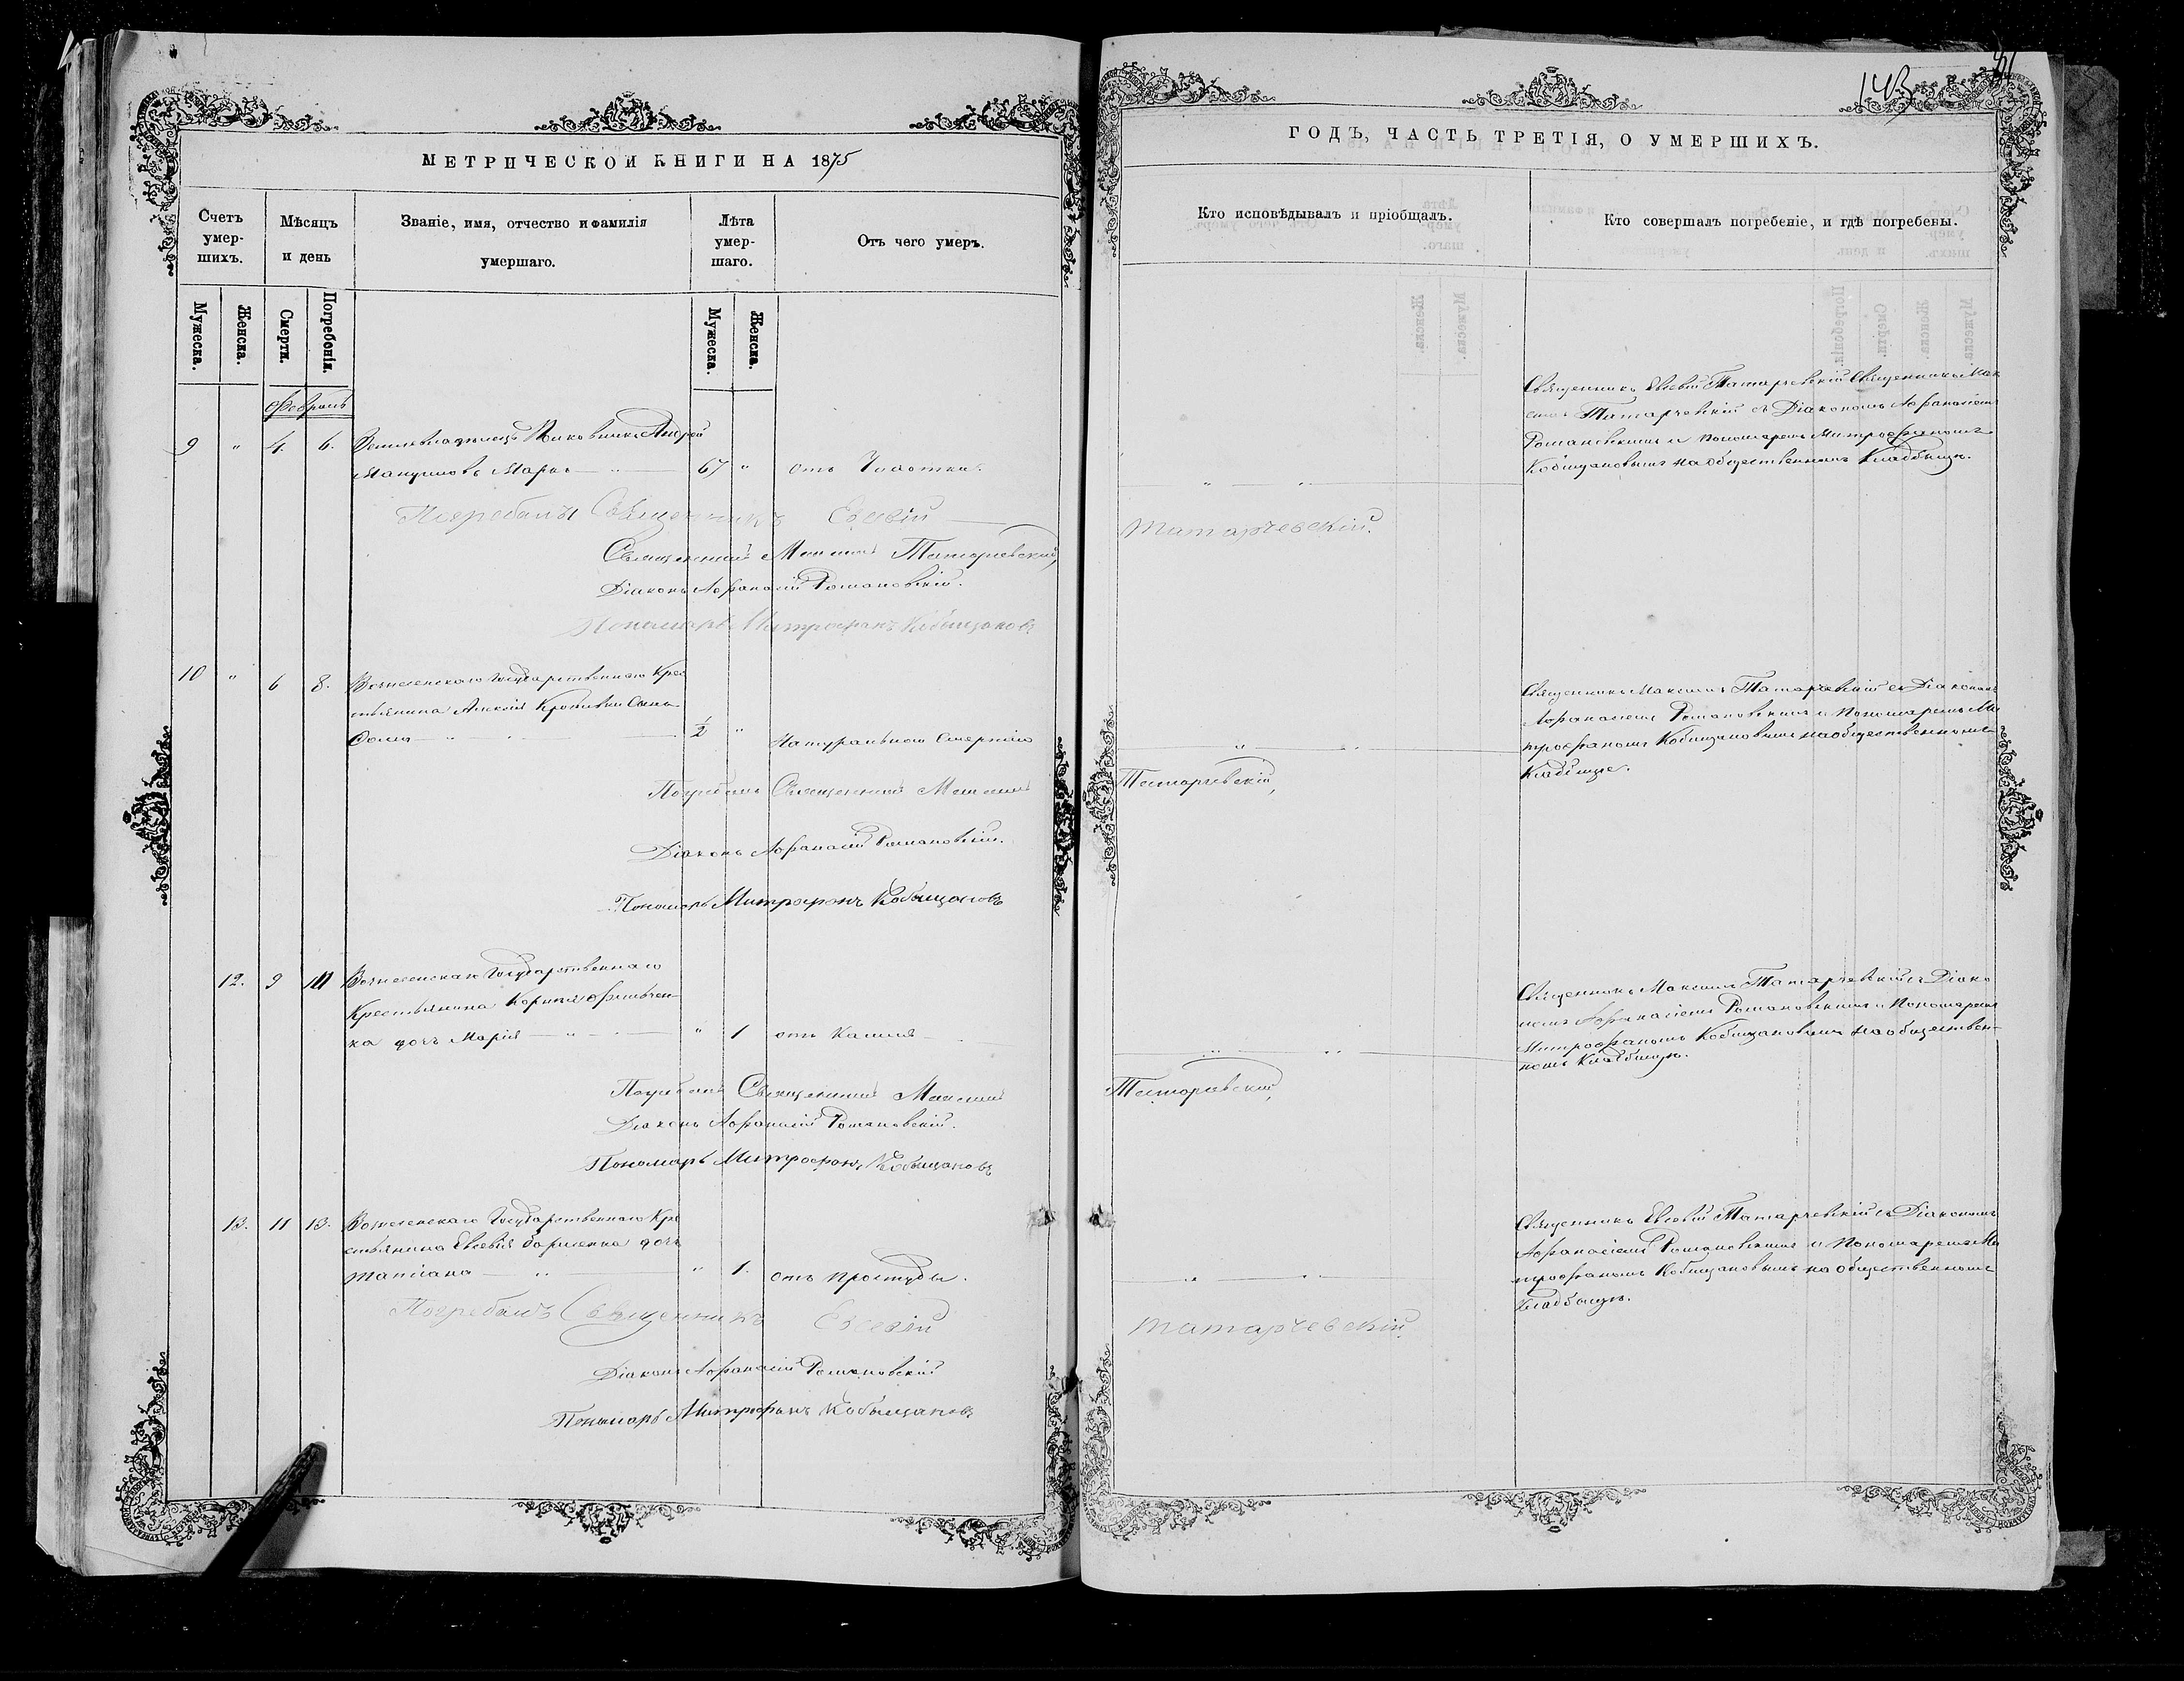 МЕТРИЧЕСКОЙ КНИГИ НА 1875
Счетъ умер-шихъ.
Мѣсяцъ и день
Званіе, имя, отчество и фамилія умершаго.
Лѣта умер-шаго.
Отъ чего умеръ.
Мужеска.
Женска.
Смерти.
Погребенія.
Мужеска.
Женска.
Февраль
9 " 4. 6. Землевладѣлецъ Полковникъ Андрей
Мануиловъ Маркъ — " — 67 " отъ Чахотки.
Погребалъ Священникъ Евсевій
Священникъ Максимъ Татарчевскій,
Діаконъ Аѳанасій Романовскій.
Пономарь Митрофанъ Кобыщановъ
10 " 6 8. Вознесенскаго Государственнаго Крес
тьянина Алексія Кропивки Сынъ
Ѳома — " — 1/2 " Натуральною Смертію
Погребалъ Священникъ Максимъ
Діаконъ Аѳанасій Романовскій.
Пономарь Митрофанъ Кобыщановъ
12. 9 Вознесенскаго Государственнаго
Крестьянина Корнилія
ка дочь Марія — " — " 1 отъ Кашля
Погребалъ Священникъ Максимъ
Діаконъ Аѳанасій Романовскій.
Пономарь Митрофанъ Кобыщановъ
13. 11 13. Вознесенскаго Государственнаго Кре
стьянина Евсевія дочь
Татіана — " — " 1. отъ простуды.
Погребалъ Священникъ Евсевій
Діаконъ Аѳанасій Романовскій
Пономарь Митрофанъ Кобыщановъ
143
ГОДЪ, ЧАСТЬ ТРЕТІЯ, О УМЕРШИХЪ.
Кто исповѣдывалъ и пріобщалъ.
Кто совершалъ погребеніе, и гдѣ погребены.
Священникъ Евсевій Татарчевскій Священникъ Мак
симъ Татарчевскій съ Діакономъ Аѳанасіемъ
Романовскимъ и Пономаремъ Митрофаномъ
Кобищановымъ на Общественномъ Кладбищѣ.
Татарчевскій.
Священникъ Максимъ Татарчевскій съ Діакономъ
Аѳанасіемъ Романовскимъ и Пономаремъ Ми
трофаномъ Кобищановымъ на общественномъ
Кладбищѣ.
Татарчевскій,
Священникъ Максимъ Татарчевскій съ Діако
номъ Аѳанасіемъ Романовскимъ и Пономаремъ
Митрофаномъ Кобищановымъ на обществен-
номъ Кладбищѣ.
Татарчевскій,
Священникъ Евсевій Татарчевскій съ Діакономъ
Аѳанасіемъ Романовскимъ и Пономаремъ Ми
трофаномъ Кобищановымъ на общественномъ
Кладбищѣ.
Татарчевскій.